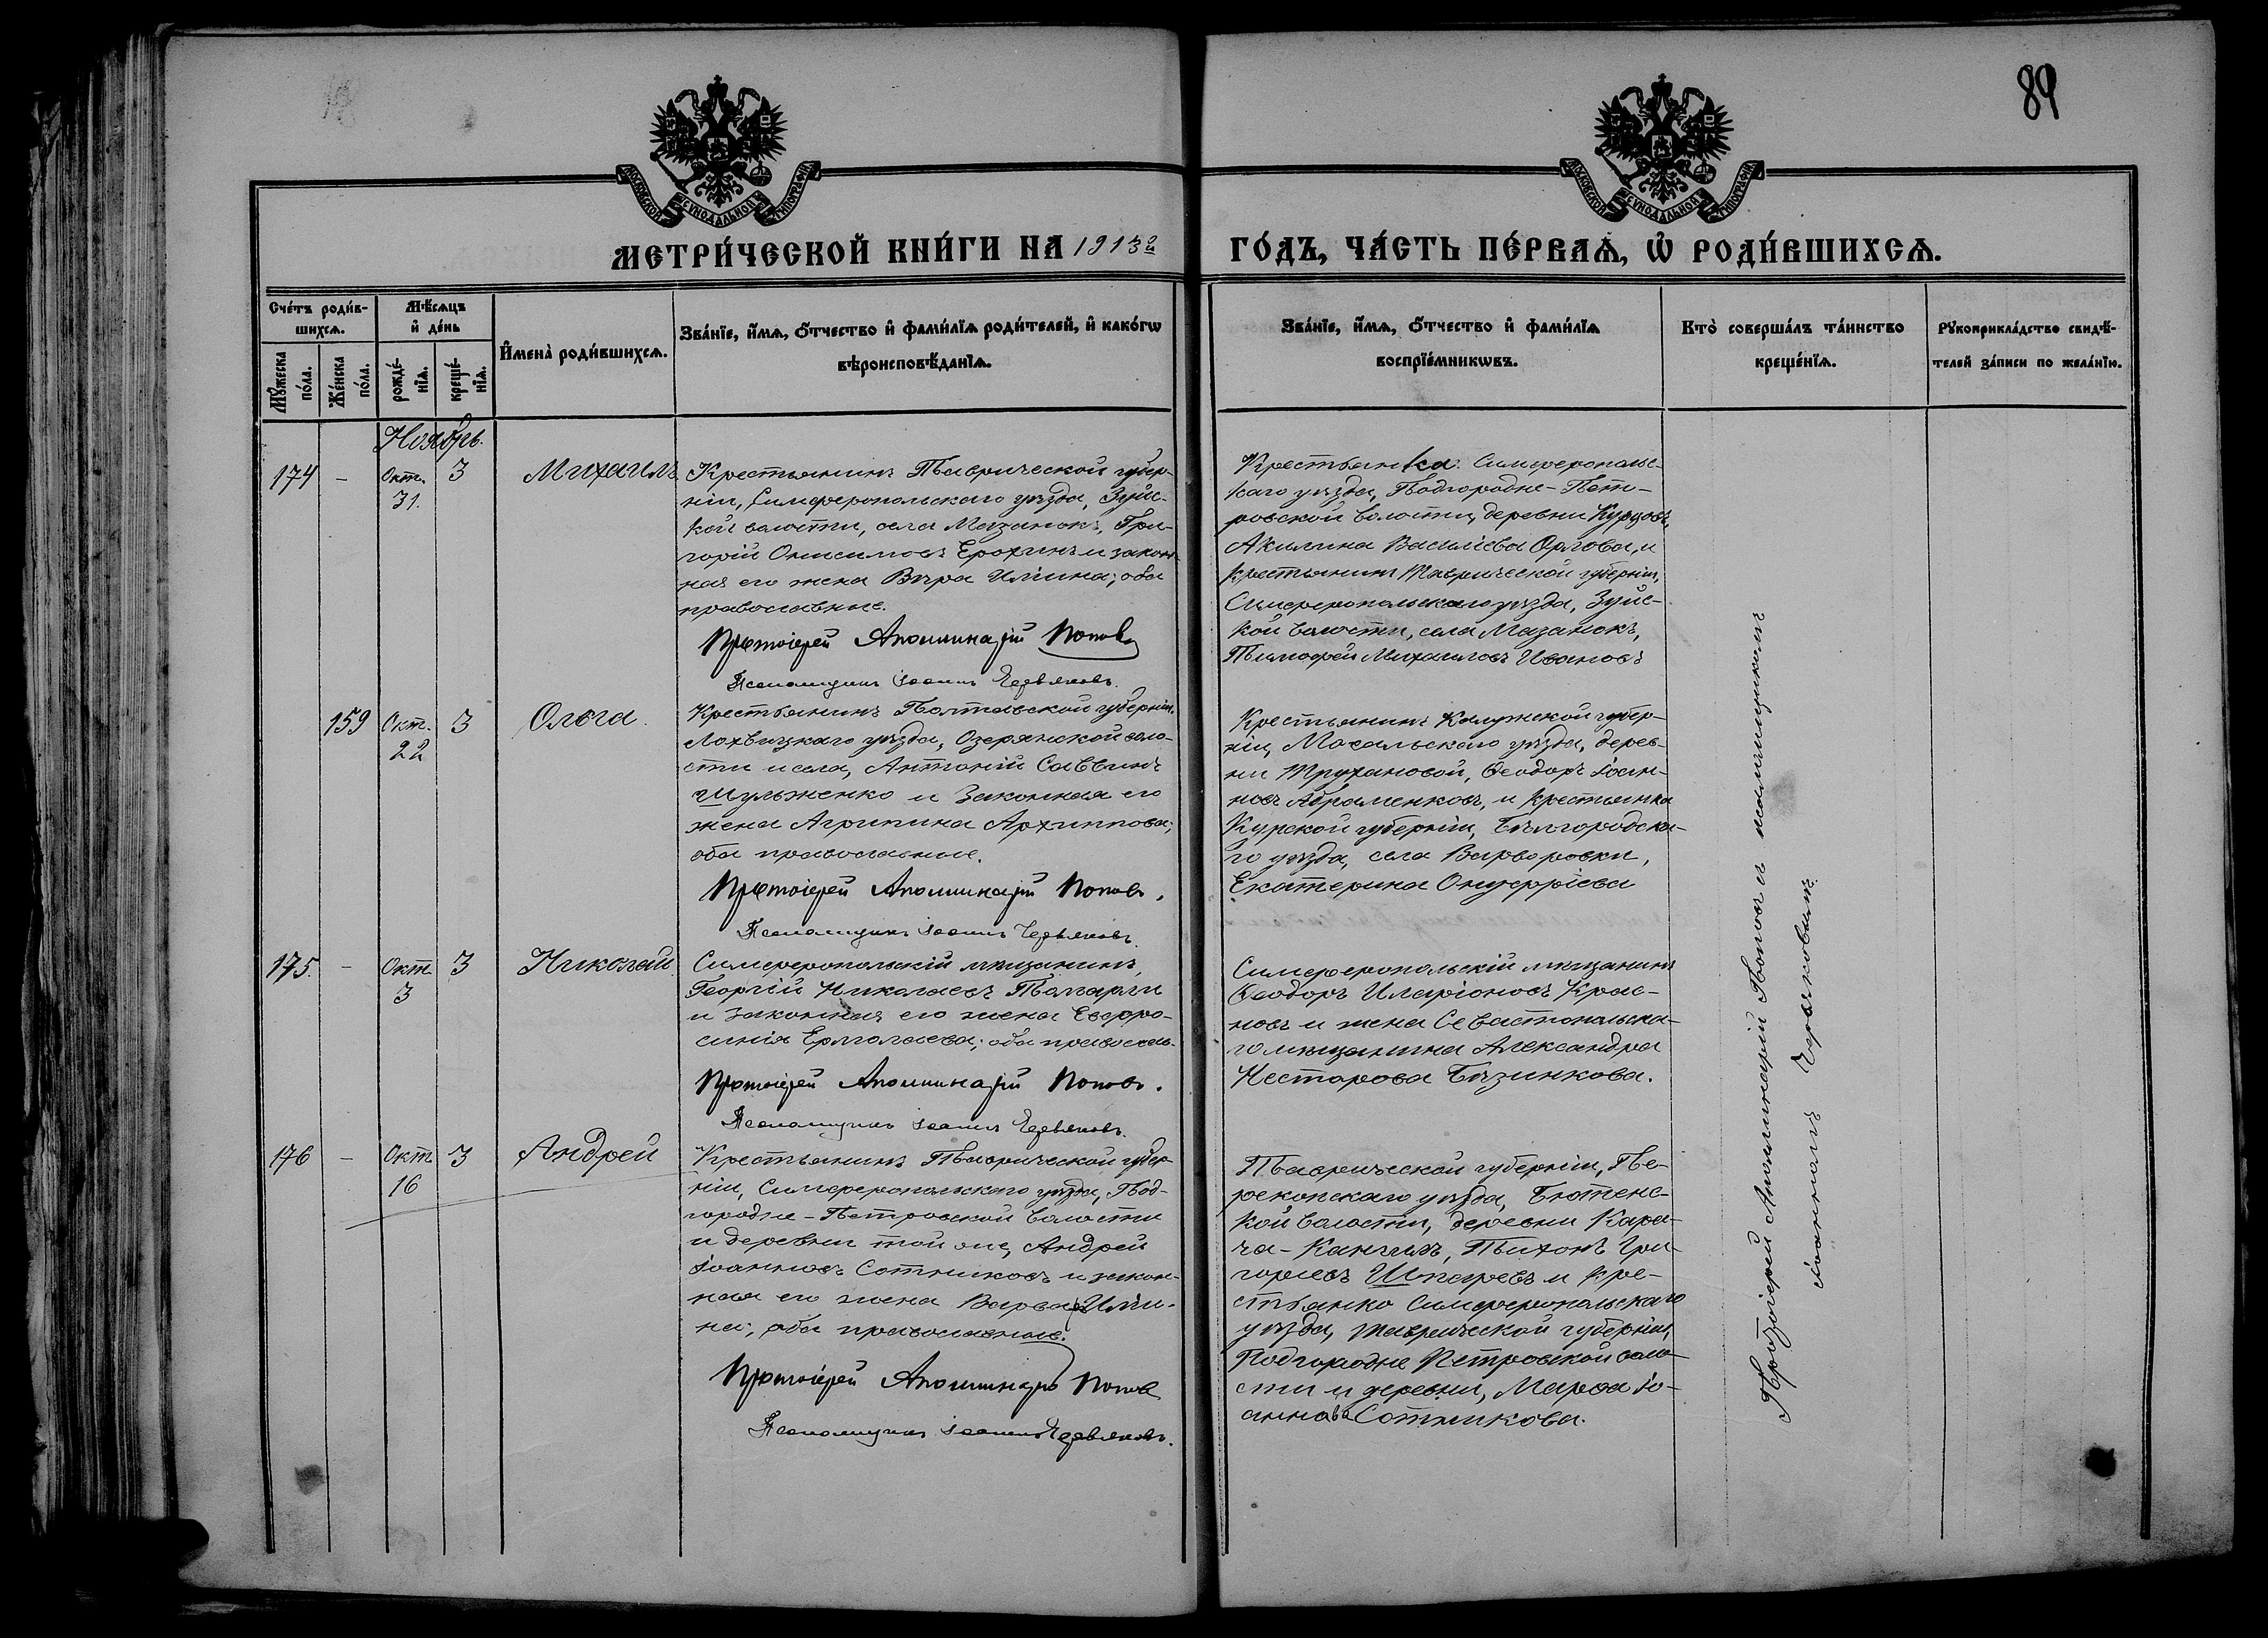 89
МОСКОВСКОЙ СѴНОДАЛЬНОЙ ТИПОГРАФІИ
МОСКОВСКОЙ СѴНОДАЛЬНОЙ ТИПОГРАФІИ
МЕТРИ́ЧЕСКОЙ КНИ́ГИ НА 1913 г.
ГО́ДЪ, ЧА́СТЬ ПЕ́РВАѦ, Ѡ҆ РОДИ́ВШИХСѦ.
Сче́тъ роди́в-
шихсѧ.
Мѣ́сѧцъ
и҆ де́нь
Мꙋ́жеска
по́ла.
Же́нска
по́ла.
рожде́-
нїѧ.
креще́-
нїѧ.
И҆мена̀ роди́вшихсѧ.
Зва́нїе, и҆́мѧ, ѻ҆́тчество и҆ фами́лїѧ роди́телей, и҆ како́гѡ
вѣроисповѣ́данїѧ.
Зва́нїе, и҆́мѧ, ѻ҆́тчество и҆ фами́лїѧ
воспрїе́мникѡвъ.
Кто̀ соверша́лъ та́инство
креще́нїѧ.
Рꙋкоприкла́дство свидѣ́-
телей за́писи по жела́нїю.
Ноябрь.
174 - Окт. 31. 3 Михаилъ
Крестьянинъ Таврической губер-
ніи, Симферопольскаго уѣзда, Зуйс-
кой волости, села Мазанокъ, Гри-
горій Онисимовъ Ерохинъ и закон-
ная его жена Вѣра Иліина; оба
православные.
Протоіерей Аполлинарій Поповъ
Псаломщикъ Іоаннъ Червяковъ.
Крестьянка Симферопольс-
каго уѣзда, Подгородне-Пет-
ровской волости, деревни Курцовъ,
Акилина Василіева Орлова, и
крестьянинъ Таврической губерніи,
Симферопольскаго уѣзда, Зуйс-
кой волости, села Мазанокъ,
Тимофей Михаиловъ Ивановъ
159 Окт. 22 3 Ольга.
Крестьянинъ Полтавской губерніи,
Лохвицкаго уѣзда, Озерянской воло-
сти и села, Антоній Саввинъ
Шульженко и законная его
жена Агрипина Архиппова;
оба православные.
Протоіерей Аполлинарій Поповъ.
Псаломщикъ Іоаннъ Червяковъ.
Крестьянинъ Калужской губер-
ніи, Мосальскаго уѣзда, дерев-
ни Трухановой, Ѳеодоръ Іоан-
новъ Абраменковъ, и крестьянка
Курской губерніи, Бѣлгородска-
го уѣзда, села Варваровки,
Екатерина Онуфріева
175. - Окт. 3 3 Николай
Симферопольскій мѣщанинъ,
Георгій Николаевъ
и законная его жена Евфро-
синія Ермолаева; оба православ.
Протоіерей Аполлинарій Поповъ.
Псаломщикъ Іоаннъ Червяковъ.
Симферопольскій мѣщанинъ
Ѳеодоръ Иларіоновъ Крас-
новъ и жена Севастопольска-
го мѣщанина Александра
Нестарова Бѣзинкова.
176 - Окт. 16 3 Андрей
Крестьянинъ Таврической губер-
ніи, Симферопольскаго уѣзда, Под-
городне-Петровской волости
и деревни той же, Андрей
Іоанновъ Сотниковъ и закон-
ная его жена Варвара Иліи-
на; оба православные.
Протоіерей Аполлинарій Поповъ
Псаломщикъ Іоаннъ Червяковъ.
Таврической губерніи, Пе-
рекопскаго уѣзда, Бютенс-
кой волости, деревни Кара-
ча-Кангилъ, Тихонъ Гри-
горіевъ Шпаревъ и кре-
стьянка Симферопольскаго
уѣзда, Таврической губерніи,
Подгородне Петровской воло-
сти и деревни, Марѳа Іо-
аннова Сотникова.
Протоіерей Аполлинарій Поповъ и псаломщикомъ
Іоанномъ Червяковымъ.